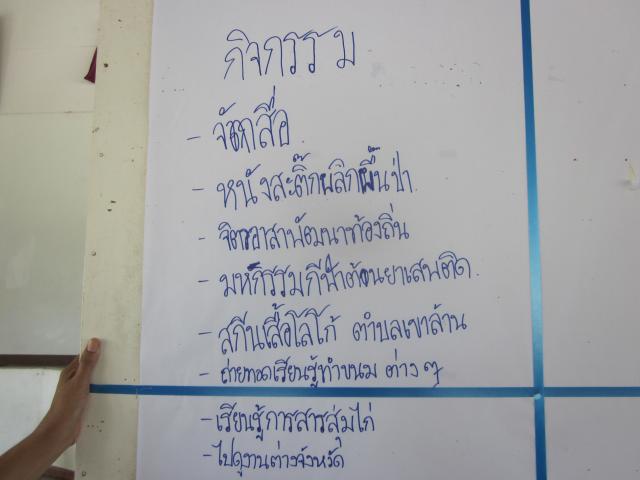 กิจกรรม
- จักสื่อ
- หนังสะติ๊กพลิกผื้นป่า
- จิตอาสาพัฒนาท้องถิ่น
- มหกรรมกีฬาต้านยาเสพติด
- สกีนเสื้อโลโก้ ตำบลเขาล้าน
- ถ่ายทอดเรียนรู้ทำขนม ต่าง ๆ
- เรียนรู้การสารสุ่มไก่
- ไปดูงานต่างจังหวัด